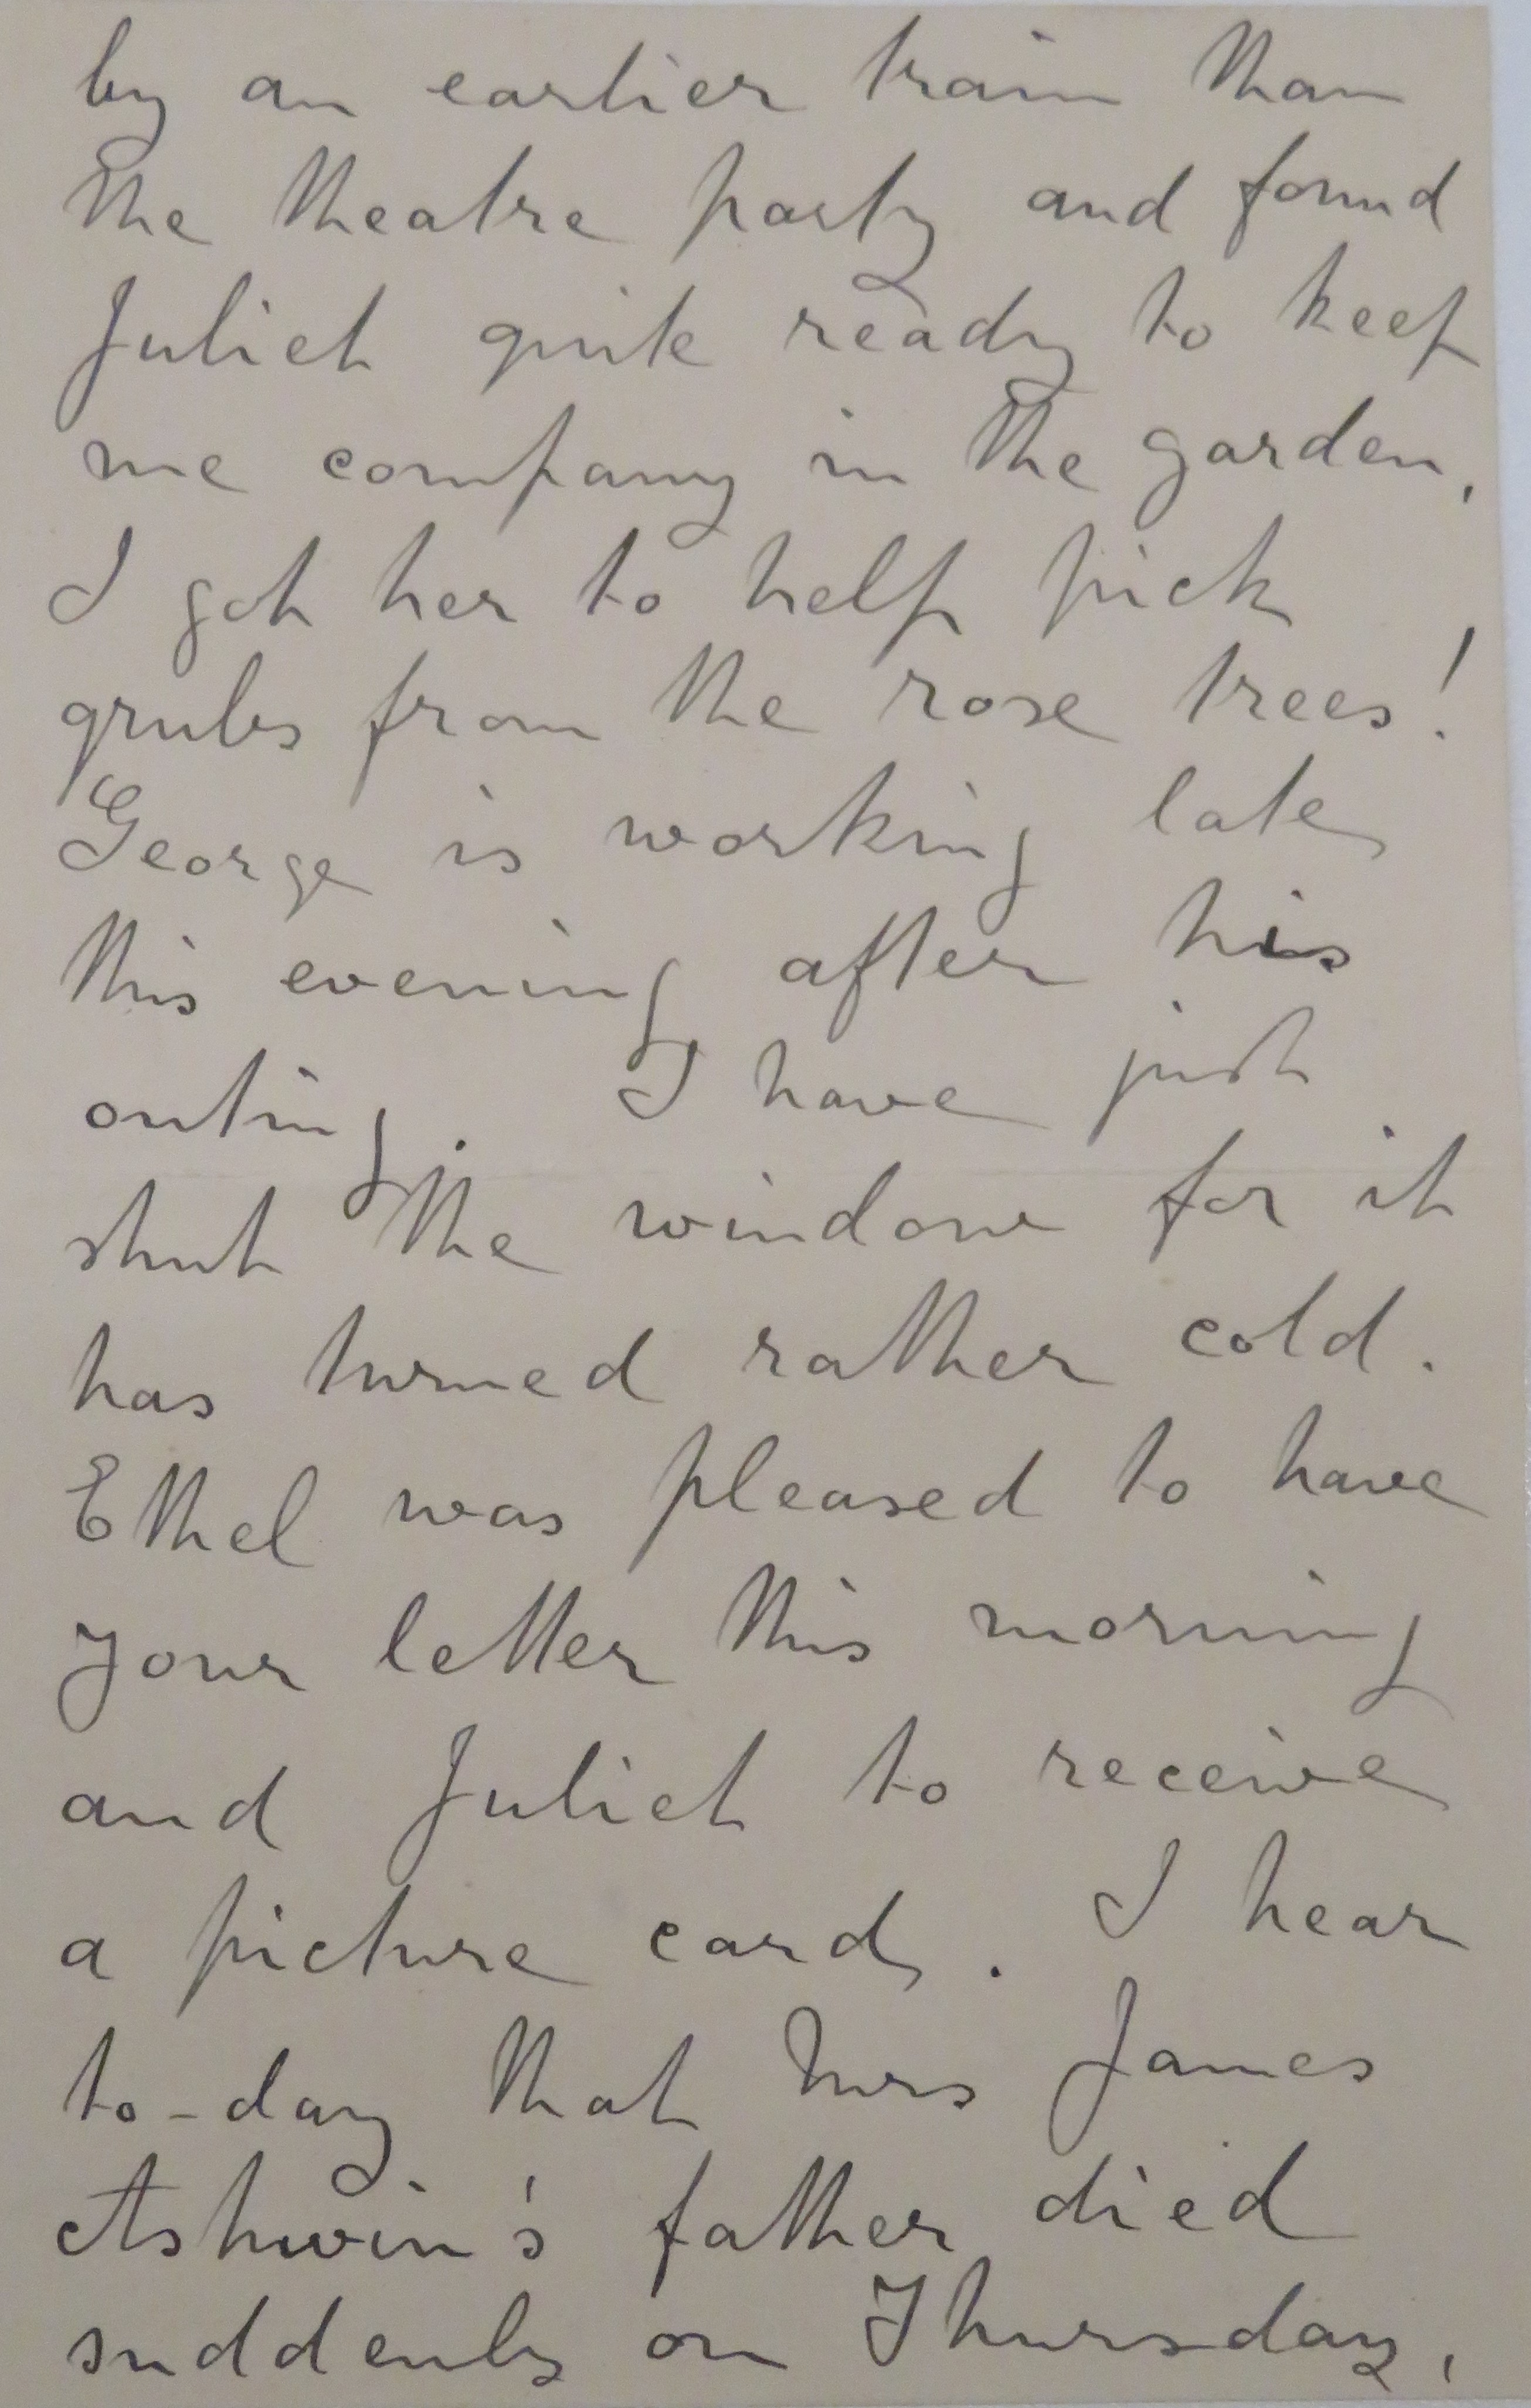 by an earlier train than
the theatre party and found
Juliet quite ready to keep
me company in the garden,
I got her to help pick
grubs from the rose trees!
George is working late
this evening after his
outing. I have just
shut the window for it
has turned rather cold.
Ethel was pleased to have
your letter this morning
and Juliet to receive
a picture card. I hear
to-day that Mrs James
Ashwin's father died
suddenly on Thursday,